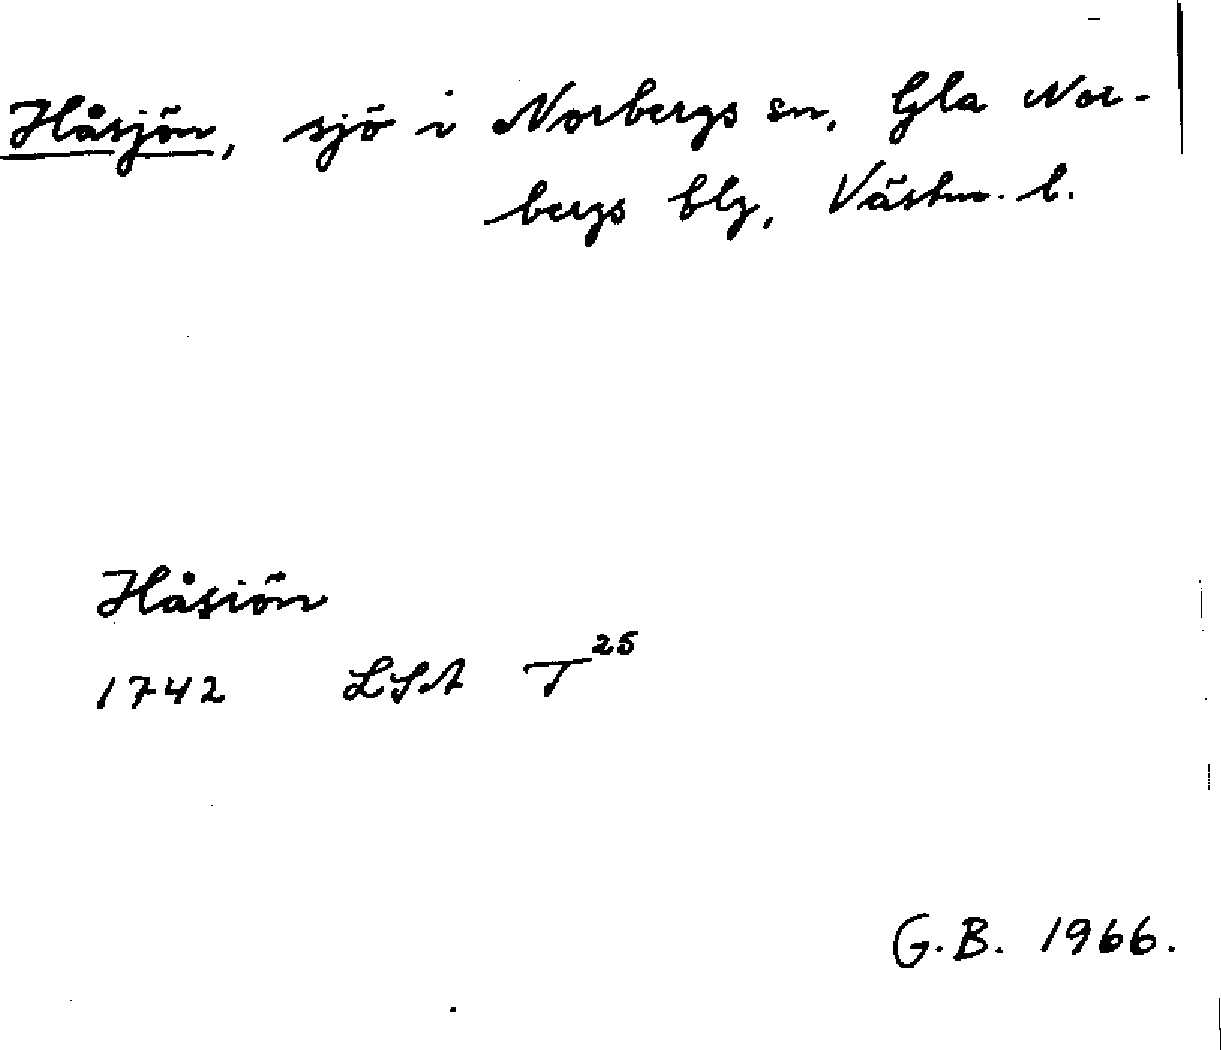 Håsjön, sjö i Norbergs sn, Gla Nor-
bergs blg, Västm. l.
Håsiön
1742 LSA T²⁵
G.B. 1966.